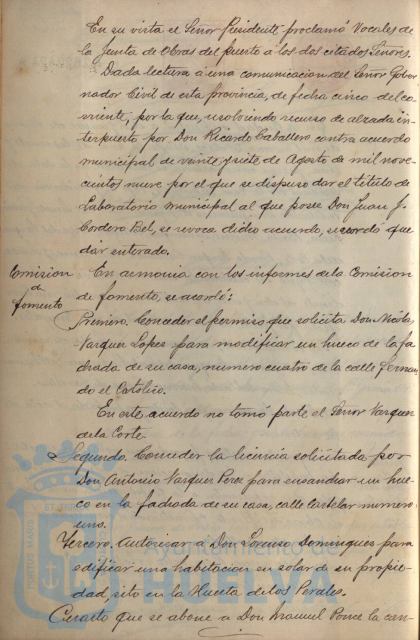 En su vista el Señor Presidente proclamó Vocales de
la Junta de Obras del puerto á los dos citados Señores.
Dada lectura á una comunicacion del Señor Gober
nador Civil de esta provincia, de fecha cinco del co
rriente, por la que, resolviendo recurso de alzada in
terpuesto por Don Ricardo Caballero contra acuerdo
municipal de veinte y siete de Agosto de mil nove
cientos nueve por el que se dispuso dar el título de
Laboratorio Municipal al que posee Don Juan J.
Cordero Bel, se revoca dicho acuerdo, se acordó que
dar enterado.
Comision
de
fomento
En armonia con los informes de la Comision
de fomento, se acordó:
Primero. Conceder el permiso que solicita Don Nicolas
Vazquez Lopez para modificar un hueco de la fa
chada de su casa, numero cuatro de la calle Fernan
do el Católico.
En este acuerdo no tomó parte el Señor Vazquez
de la Corte.
Segundo. Conceder la licencia solicitada por
Don Antonio Vazquez Perez para ensanchar un hue
co en la fachada de su casa, calle Castelar numero
uno.
Tercero. Autorizar a Don Lorenzo Dominguez para
edificar una habitacion en solar de su propie
dad, sito en la Huerta de los Perales.
Cuarto que se abone a Don Manuel Ponce la can
Ayuntamiento de
HUELVA